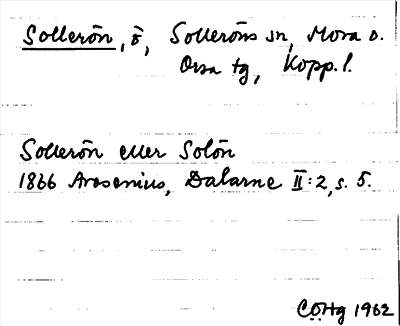 Sollerön, ö, Solleröns sn, Mora o.
Orsa tg, Kopp. l.
Sollerön eller Solön
1866 Arosenius, Dalarne II:2, s. 5.
COHg 1962